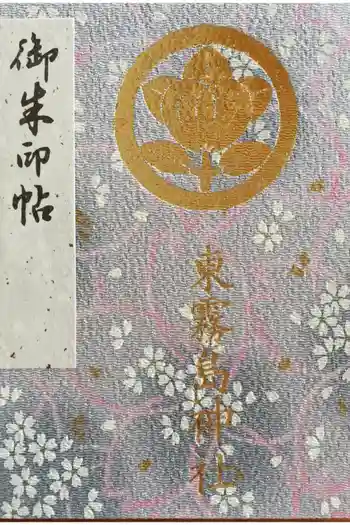 御朱印帖
東霧島神社